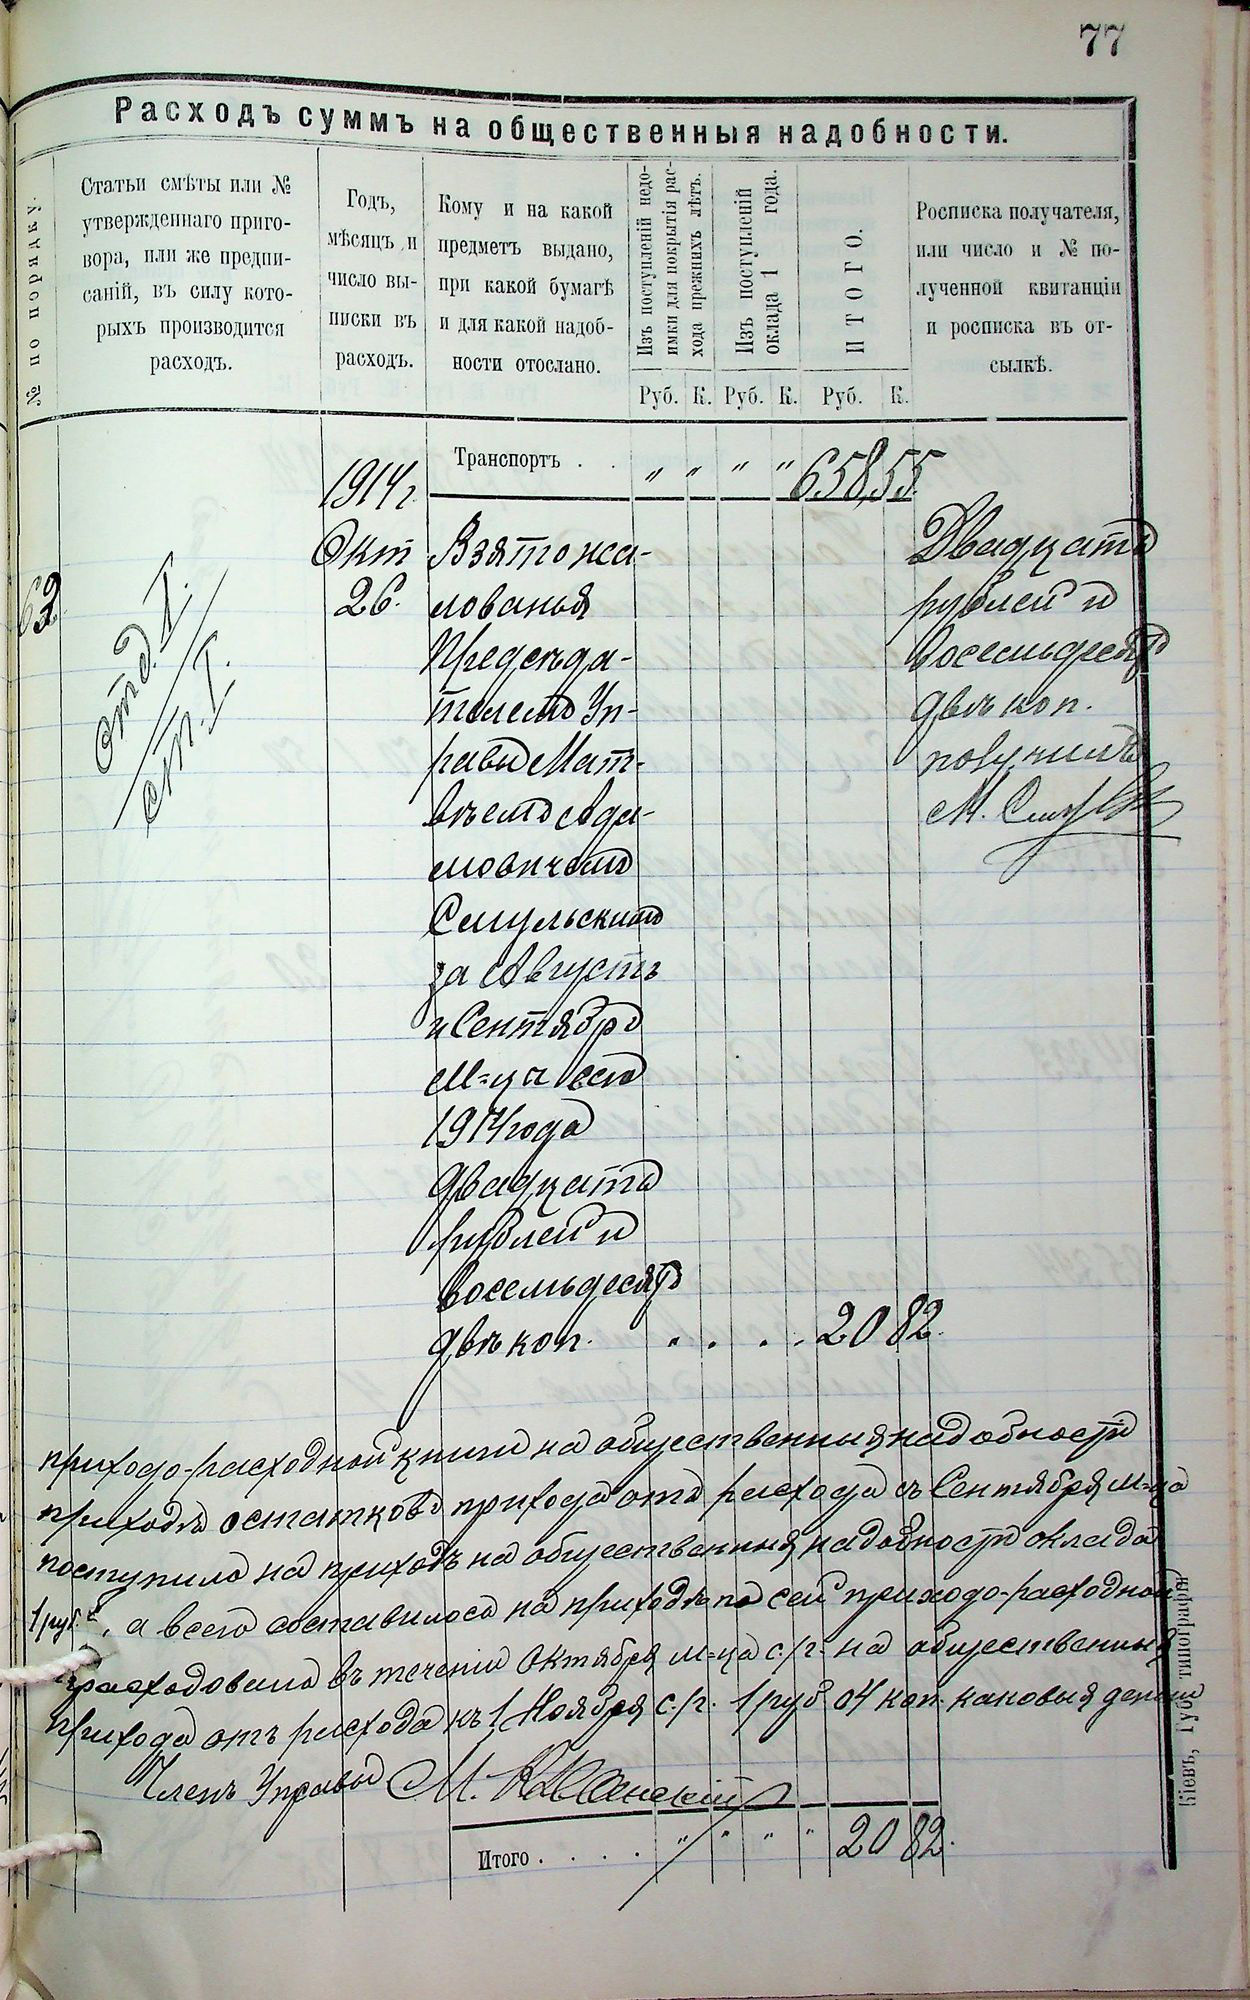 77
Расходъ суммъ на общественныя надобности.
№ по порядку.
Статьи смѣты или №
утвержденнаго приго-
вора, или же предпи-
саній, въ силу кото-
рыхъ производится
расходъ.
Годъ,
мѣсяцъ и
число вы-
писки въ
расходъ.
Кому и на какой
предметъ выдано,
при какой бумагѣ
и для какой надоб-
ности отослано.
Изъ поступленій недо-
имки для покрытія рас-
хода прежнихъ лѣтъ.
Изъ поступленій
оклада 1 года.
ИТОГО.
Росписка получателя,
или число и № по-
лученной квитанціи
и росписка въ от-
сылкѣ.
Руб. К. Руб. К. Руб. К.
Транспортъ . . " " " " 658,55.
1914 г.
Окт
26.
62
Отд. I.
ст. I.
Взято жа-
лованья
Предсѣда-
телемъ Уп-
равы Мат-
вѣемъ Ада-
мовичемъ
Смульскимъ
за Августъ
и Сентябрь
м-ца сего
1914 года
двадцать
рублей и
восемьдесятъ
двѣ коп. . . . . 20 82.
Двадцать
рублей и
восемьдесятъ
двѣ коп.
получилъ
М.
приходо-расходной книги на общественныя надобности
приходѣ остатковъ прихода отъ расхода съ Сентября м-ца
поступило на приходъ на общественныя надобности оклада
1 руб. , а всего составилось на приходѣ по сей приходо-расходной
расходовано въ теченіи Октября м-ца с/г. на общественныя
прихода отъ расхода къ 1 Ноября с/г. 1 руб 04 коп. каковыя деньги
Членъ Управы М.
Итого . . . . " " " " 20 82.
Кіевъ, Губ. типографія